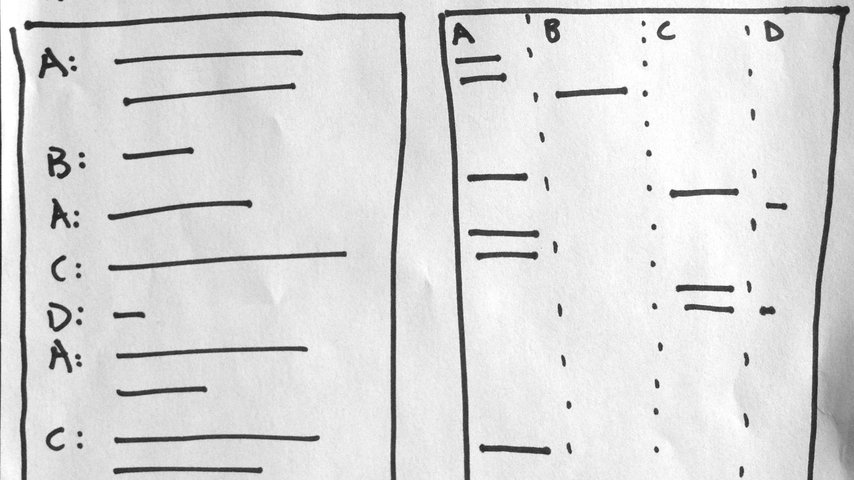 A:
B:
A:
C:
D:
A:
C:
A B C D